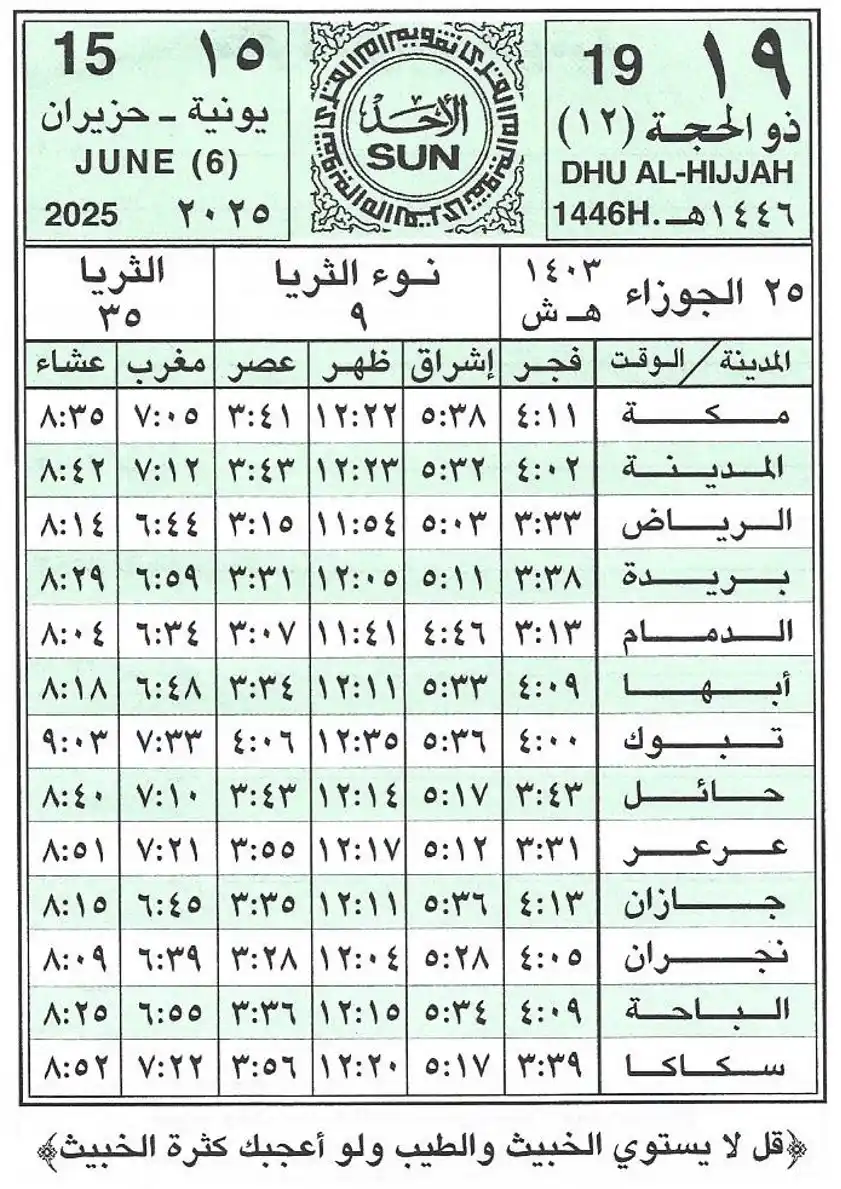 ١٩ 19
ذو الحجة (١٢)
DHU AL-HIJJAH
1446H. ١٤٤٦هـ
الأحد
SUN
١٥ 15
يونية - حزيران
JUNE (6)
2025 ٢٠٢٥
٢٥ الجوزاء ١٤٠٣ هـ ش
نوء الثريا
٩
الثريا
٣٥
المدينة / الوقت فجر إشراق ظهر عصر مغرب عشاء
مكة ٤:١١ ٥:٣٨ ١٢:٢٢ ٣:٤١ ٧:٠٥ ٨:٣٥
المدينة ٤:٠٢ ٥:٣٢ ١٢:٢٣ ٣:٤٣ ٧:١٢ ٨:٤٢
الرياض ٣:٣٣ ٥:٠٣ ١١:٥٤ ٣:١٥ ٦:٤٤ ٨:١٤
بريدة ٣:٣٨ ٥:١١ ١٢:٠٥ ٣:٣١ ٦:٥٩ ٨:٢٩
الدمام ٣:١٣ ٤:٤٦ ١١:٤١ ٣:٠٧ ٦:٣٤ ٨:٠٤
أبها ٤:٠٩ ٥:٣٣ ١٢:١١ ٣:٣٤ ٦:٤٨ ٨:١٨
تبوك ٤:٠٠ ٥:٣٦ ١٢:٣٥ ٤:٠٦ ٧:٣٣ ٩:٠٣
حائل ٣:٤٣ ٥:١٧ ١٢:١٤ ٣:٤٣ ٧:١٠ ٨:٤٠
عرعر ٣:٣١ ٥:١٢ ١٢:١٧ ٣:٥٥ ٧:٢١ ٨:٥١
جازان ٤:١٣ ٥:٣٦ ١٢:١١ ٣:٣٥ ٦:٤٥ ٨:١٥
نجران ٤:٠٥ ٥:٢٨ ١٢:٠٤ ٣:٢٨ ٦:٣٩ ٨:٠٩
الباحة ٤:٠٩ ٥:٣٤ ١٢:١٥ ٣:٣٦ ٦:٥٥ ٨:٢٥
سكاكا ٣:٣٩ ٥:١٧ ١٢:٢٠ ٣:٥٦ ٧:٢٢ ٨:٥٢
﴿قل لا يستوي الخبيث والطيب ولو أعجبك كثرة الخبيث﴾